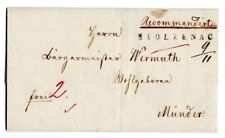 Recommandirt
STOLZENAU
9/11
Herrn
Bürgermeister Wermuth
Wohlgeboren
frei 2.
Münder